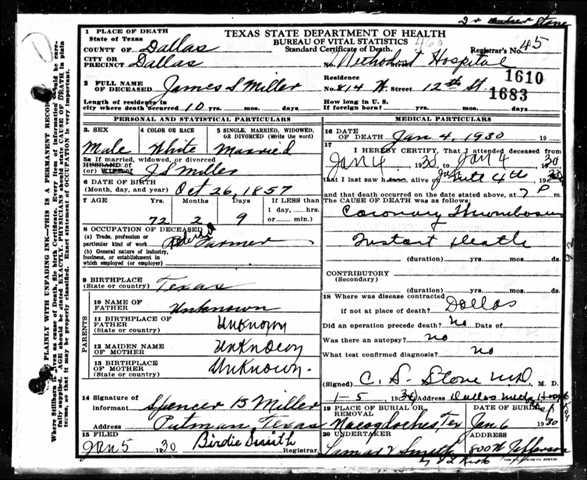 TEXAS STATE DEPARTMENT OF HEALTH
BUREAU OF VITAL STATISTICS
Standard Certificate of Death
Registrar's No. 45
1 PLACE OF DEATH
State of Texas
COUNTY OF Dallas
CITY OR PRECINCT Dallas
No. Methodist Hospital
2 FULL NAME OF DECEASED James S Miller
Residence No. 814 W. Street 12th St.
1610
1683
Length of residence in city where death occurred 10 yrs. mos. days
How long in U. S. if of foreign birth? yrs. mos. days
PERSONAL AND STATISTICAL PARTICULARS
3. SEX Male
4 COLOR OR RACE White
5 SINGLE, MARRIED, WIDOWED, OR DIVORCED (Write the word) Married
5a If married, widowed, or divorced
HUSBAND of
(or) WIFE of J S Miller
6 DATE OF BIRTH
(Month, day, and year) Oct 26, 1857
7 AGE Years 72 Months 2 Days 9
If LESS than 1 day, hrs. or min.
8 OCCUPATION OF DECEASED
(a) Trade, profession or particular kind of work Retired Farmer
(b) General nature of industry, business, or establishment in which employed (or employer)
9 BIRTHPLACE
(State or country) Texas
PARENTS
10 NAME OF FATHER Unknown
11 BIRTHPLACE OF FATHER
(State or country) Unknown
12 MAIDEN NAME OF MOTHER Unknown
13 BIRTHPLACE OF MOTHER
(State or country) Unknown.
14 Signature of informant Spencer B Miller
Address Putman, Texas
15 FILED Jan 5 30 Birdie Smith
Registrar
MEDICAL PARTICULARS
16 DATE OF DEATH Jan 4, 1930 19
17 I HEREBY CERTIFY, That I attended deceased from
Jan 4 1930 Jan 4 30
that I last saw h alive on 4th 30
and that death occurred on the date stated above, at 7 P m
The CAUSE OF DEATH was as follows:
Coronary Thrombosis
Instant Death
(duration) yrs. mos. ds.
CONTRIBUTORY
(Secondary)
(duration) yrs. mos. ds.
18 Where was disease contracted
if not at place of death? Dallas
Did an operation precede death? No Date of
Was there an autopsy? no
What test confirmed diagnosis? No
(Signed) C. S. Stone MD, M. D.
1-5 1930
19 PLACE OF BURIAL OR REMOVAL Nacogdoches, Tex
DATE OF BURIAL Jan 6 1930
20 UNDERTAKER
ADDRESS 800 W Jefferson